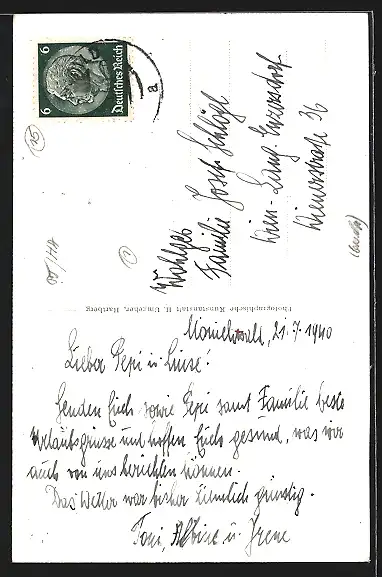 Mönichwald, 21.7.1940
Lieber Pepi u. Luise!
Senden Euch sowie Pepi samt Familie beste
Urlaubsgrüsse und hoffen Euch gesund, was wir
auch von uns berichten können.
Das Wetter war bisher ziemlich günstig.
Toni, Albine u. Irene
Wohlgeb.
Familie Josef Schlögl
Wien - Lang Enzersdorf
Wienerstraße 36
Photographische Kunstanstalt H. Hartberg
Deutsches Reich
6 6
a